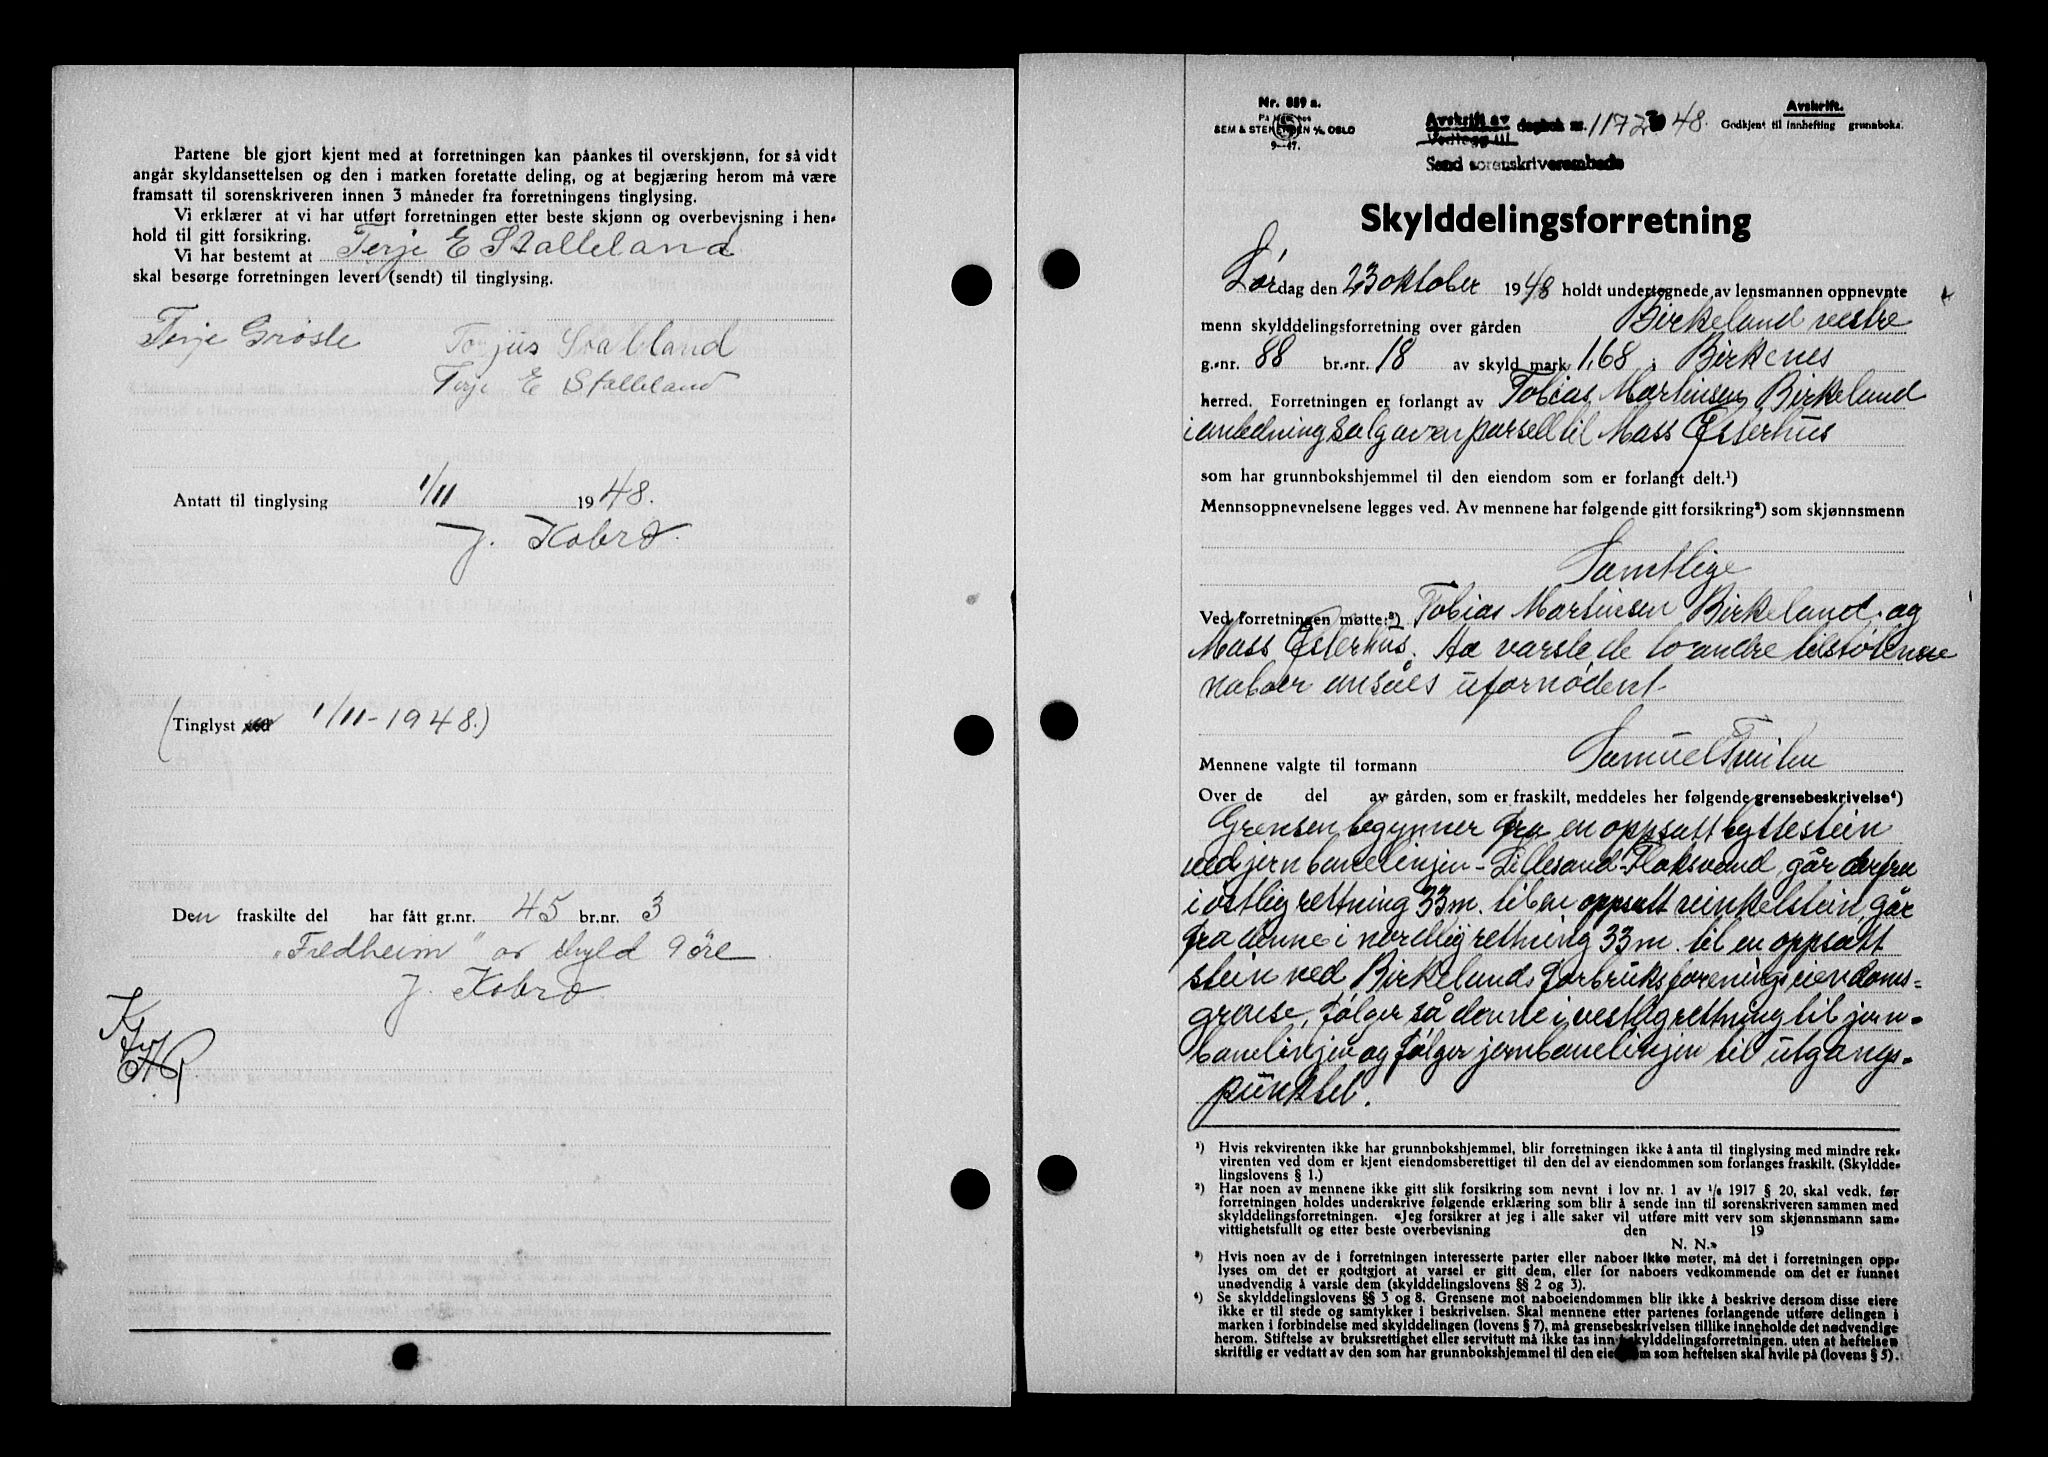 Partene ble gjort kjent med at forretningen kan påankes til overskjønn, for så vidt
angår skyldansettelsen og den i marken foretatte deling, og at begjæring herom må være
framsatt til sorenskriveren innen 3 måneder fra forretningens tinglysing.
Vi erklærer at vi har utført forretningen etter beste skjønn og overbevisning i hen-
hold til gitt forsikring.
Vi har bestemt at Terje E Stalleland
skal besørge forretningen levert (sendt) til tinglysing.
Terje Grosle Torjus Stalleland
Terje E Stalleland
Antatt til tinglysing 1/11 1948.
J. Kobro.
(Tinglyst 1/11-1948.)
Den fraskilte del har fått gr.nr. 45 br.nr. 3
"Fredheim" av skyld 9 öre
J. Kobro
Nr. 889 a.
På lager hos
SEM & STENERSEN A/S, OSLO
9-47.
Avskrift av dagbok nr. 1172 48.
Vedlegg til
Sand sorenskriverembede
Avskrift.
Godkjent til innhefting i grunnboka.
Skylddelingsforretning
Lørdag den 23 oktober 1948 holdt undertegnede av lensmannen oppnevnte
menn skylddelingsforretning over gården Birkeland vestre
g.-nr. 88 br.-nr. 18 av skyld mark 1,68 i Birkenes
herred. Forretningen er forlangt av Tobias Martinsen Birkeland
i anledning salg av en parsell til Mass Esterhus
som har grunnbokshjemmel til den eiendom som er forlangt delt.¹)
Mennsoppnevnelsene legges ved. Av mennene har følgende gitt forsikring²) som skjønnsmenn
Samtlige
Ved forretningen møtte:³) Tobias Martinsen Birkeland og
Mass Esterhus. Aa varsle de to andre tilstøtende
naboer ansåes ufornødent
Mennene valgte til formann Samuel
Over de del av gården, som er fraskilt, meddeles her følgende grensebeskrivelse⁴)
Grensen begynner fra en oppsatt byttestein
ved jernbanelinjen - Lillesand-Flaksvand, går derfra
i østlig rettning 33 m. til en oppsatt vinkelstein, går
fra denne i nordlig rettning 33 m. til en oppsatt
stein ved Birkelands forbruksforenings eiendoms=
grense, følger så denne i vestlig rettning til jern-
banelinjen og følger jernbanelinjen til utgangs-
punktet.
¹) Hvis rekvirenten ikke har grunnbokshjemmel, blir forretningen ikke å anta til tinglysing med mindre rek-
virenten ved dom er kjent eiendomsberettiget til den del av eiendommen som forlanges fraskilt. (Skyldde-
lingslovens § 1.)
²) Har noen av mennene ikke gitt slik forsikring som nevnt i lov nr. 1 av 1/6 1917 § 20, skal vedk. før
forretningen holdes underskrive følgende erklæring som blir å sende inn til sorenskriveren sammen med
skylddelingsforretningen. «Jeg forsikrer at jeg i alle saker vil utføre mitt verv som skjønnsmann sam-
vittighetsfullt og etter beste overbevisning den 19
N. N.»
³) Hvis noen av de i forretningen interesserte parter eller naboer ikke møter, må det i forretningen opp-
lyses om det er godtgjort at varsel er gitt dem, eller for naboers vedkommende om det er funnet
unødvendig å varsle dem (skylddelingslovens §§ 2 og 3).
⁴) Se skylddelingslovens §§ 3 og 8. Grensene mot naboeiendommen blir ikke å beskrive dersom disse eiere
ikke er til stede og samtykker i beskrivelsen. Skal mennene etter partenes forlangende utføre delingen i
marken i forbindelse med skylddelingen (lovens § 7), må grensebeskrivelsen tillike inneholde det nødvendige
herom. Stiftelse av bruksrettighet eller servitutt må ikke tas inn i skylddelingsforretningen, uten at heftelsen
skriftlig er vedtatt av den som har grunnbokshjemmel til den eiendom som heftelsen skal hvile på (lovens § 5).